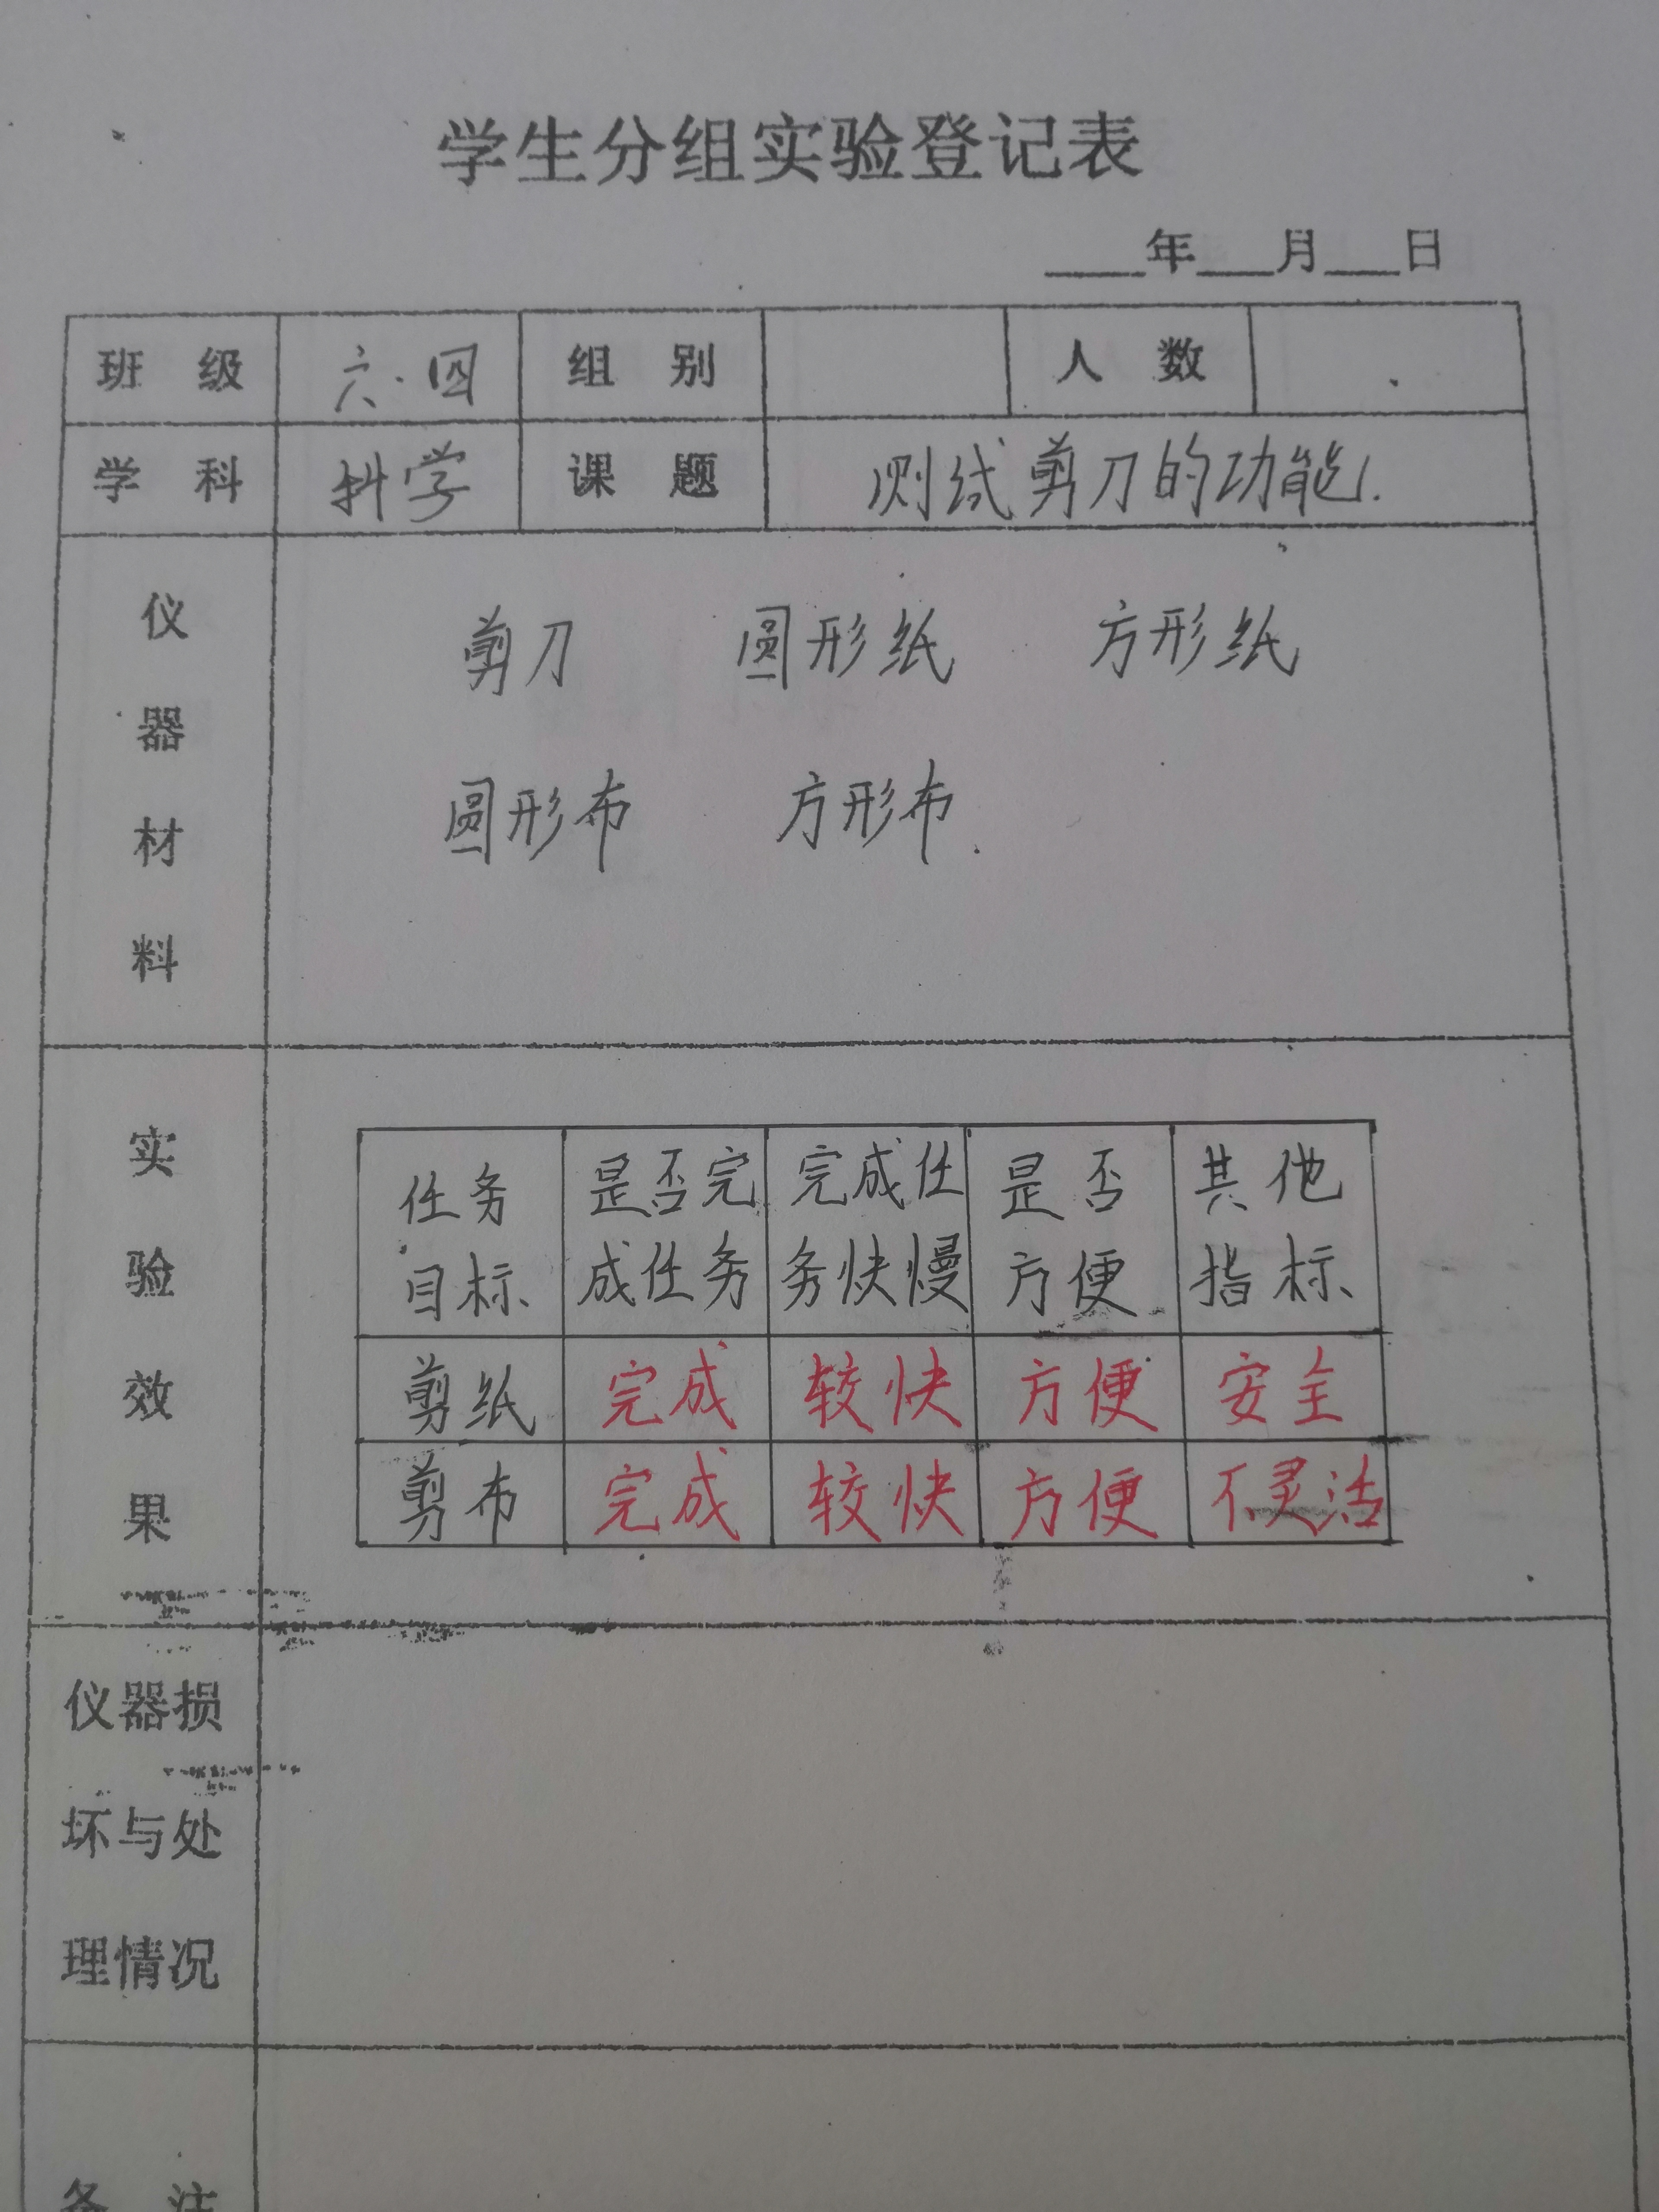 学生分组实验登记表
____年___月___日
班 级 六.四 组 别 人 数
学 科 科学 课 题 测试剪刀的功能.
仪器材料
剪刀 圆形纸 方形纸
圆形布 方形布.
实验效果
任务目标 是否完成任务 完成任务快慢 是否方便 其他指标
剪纸 完成 较快 方便 安全
剪布 完成 较快 方便 不灵活
仪器损
坏与处
理情况
备 注